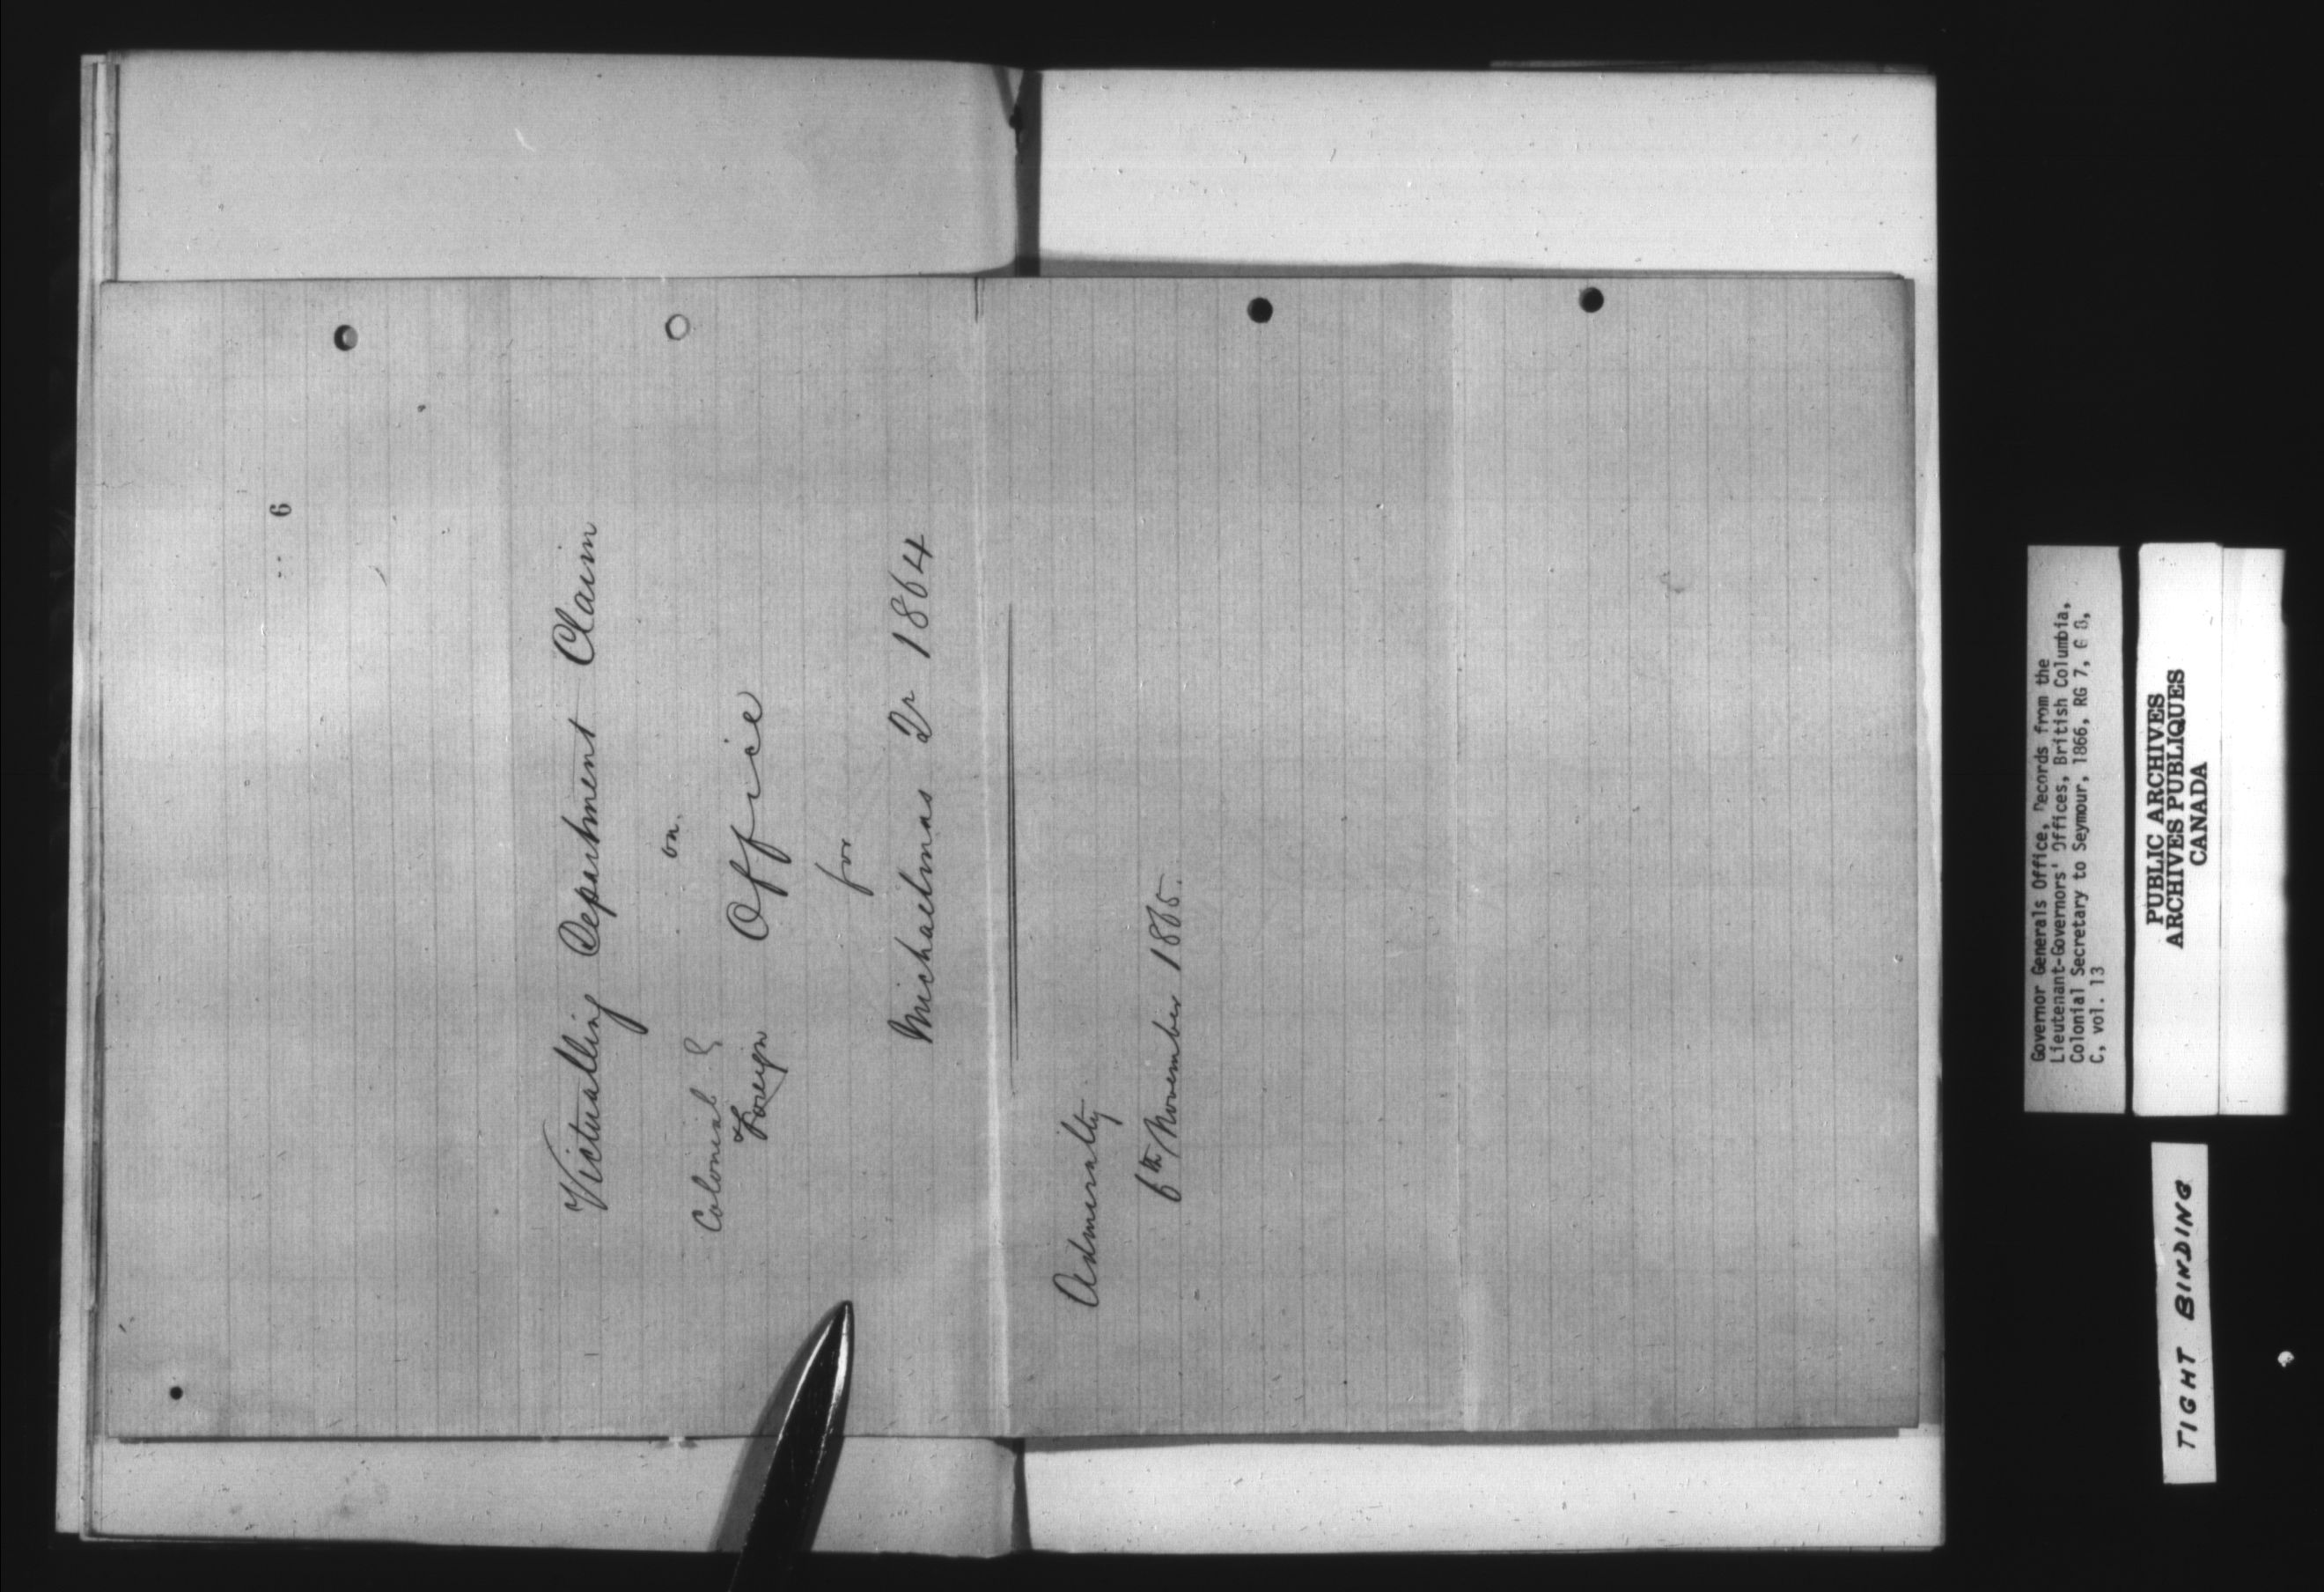 6
Victualling Department Claim
on
Colonial &
Foreign Office
for
Michaelmas Qr 1864
Admiralty
6th November 1865.
Governor Generals Office, Records from the
Lieutenant-Governors' Offices, British Columbia,
Colonial Secretary to Seymour, 1866, RG 7, G 8,
C, vol. 13
PUBLIC ARCHIVES
ARCHIVES PUBLIQUES
CANADA
TIGHT BINDING